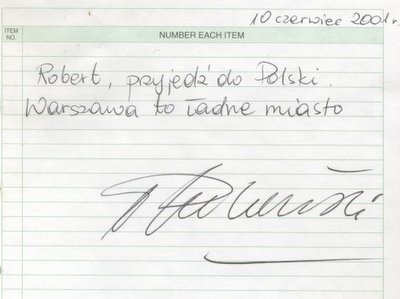 10 czerwiec 2001r.
ITEM NO.
NUMBER EACH ITEM
Robert, przyjedź do Polski.
Warszawa to ładne miasto